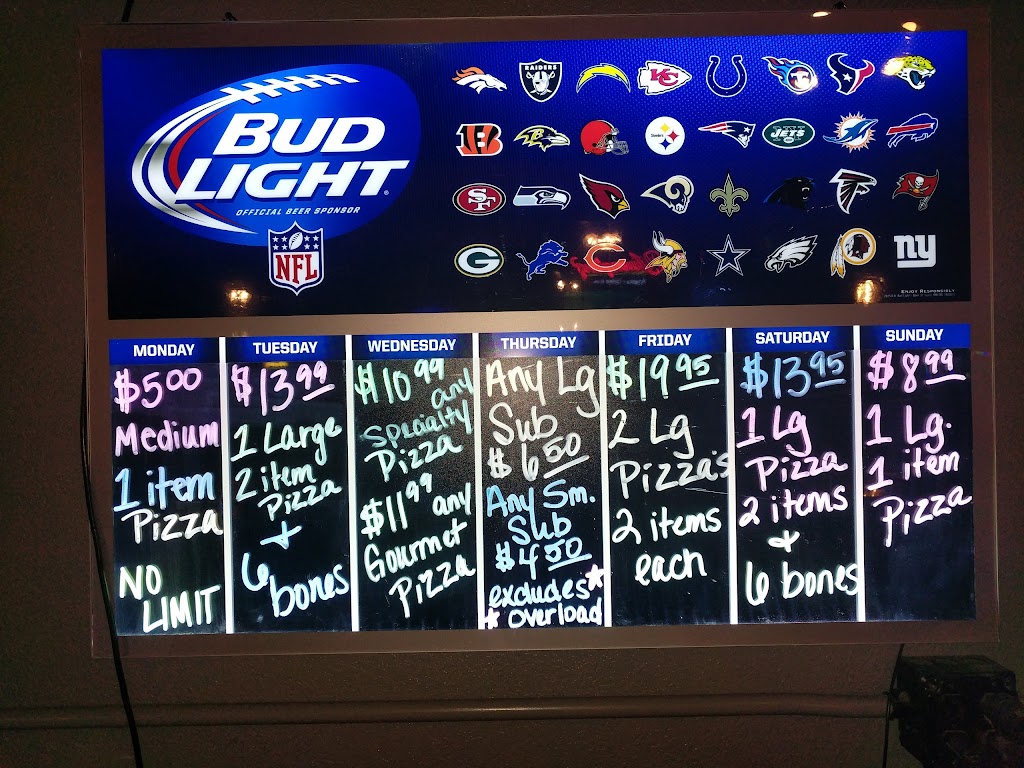 BUD
LIGHT
OFFICIAL BEER SPONSOR
NFL
RAIDERS
KC
Steelers
JETS
SF
G
C
ny
ENJOY RESPONSIBLY
MONDAY
$5.00
Medium
1 item
Pizza
NO
LIMIT
TUESDAY
$13.99
1 Large
2 item
Pizza
+
6
bones
WEDNESDAY
$10.99
any
Specialty
Pizza
$11.99 any
Gourmet
Pizza
THURSDAY
Any Lg
Sub
$6.50
Any Sm.
Sub
$4.50
excludes*
* overload
FRIDAY
$19.95
2 Lg
Pizza's
2 items
each
SATURDAY
$13.95
1 Lg
Pizza
2 items
&
6 bones
SUNDAY
$8.99
1 Lg.
1 item
Pizza